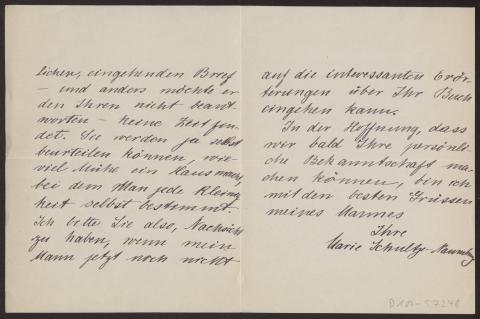 lichen, eingehenden Brief
— und anders möchte er
den Ihren nicht beant-
worten — keine Zeit fin-
det. Sie werden ja selbst
beurteilen können, wie-
viel Mühe ein Haus macht,
bei dem Man jede Kleinig-
keit selbst bestimmt.
Ich bitte Sie also, Nachsicht
zu haben, wenn mein
Mann jetzt noch nicht
auf die interessanten Erör-
terungen über Ihr Buch
eingehen kann.
In der Hoffnung, dass
wir bald Ihre persönli-
che Bekanntschaft ma-
chen können, bin ich
mit den besten Grüssen
meines Mannes
Ihre
Marie Schultze-Naumburg